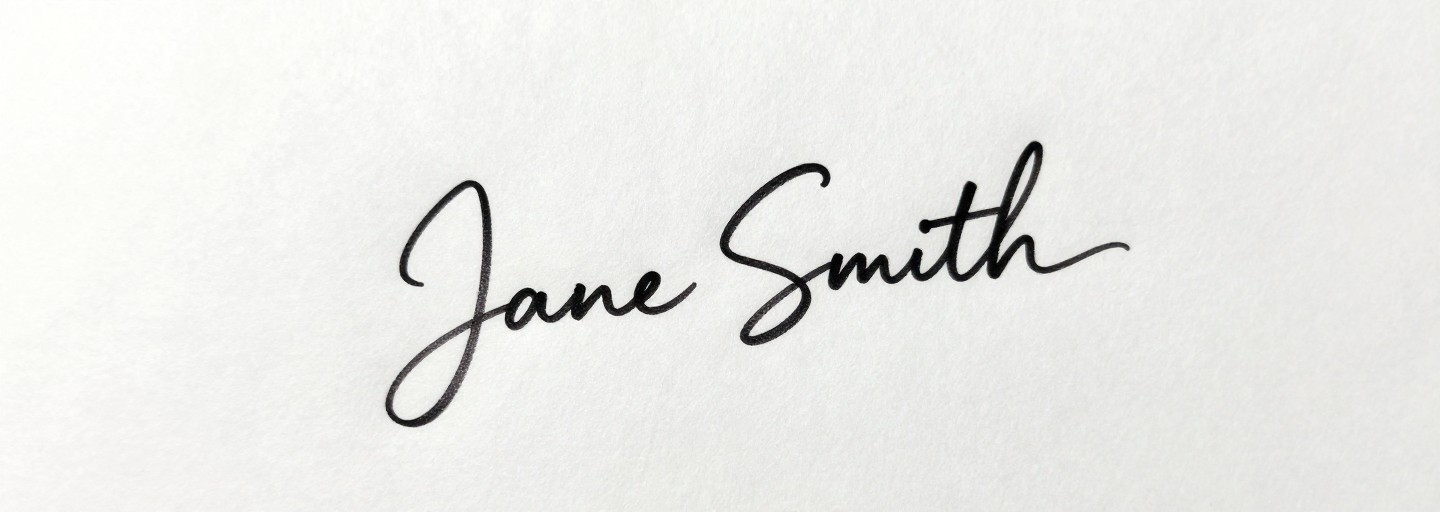 Jane Smith